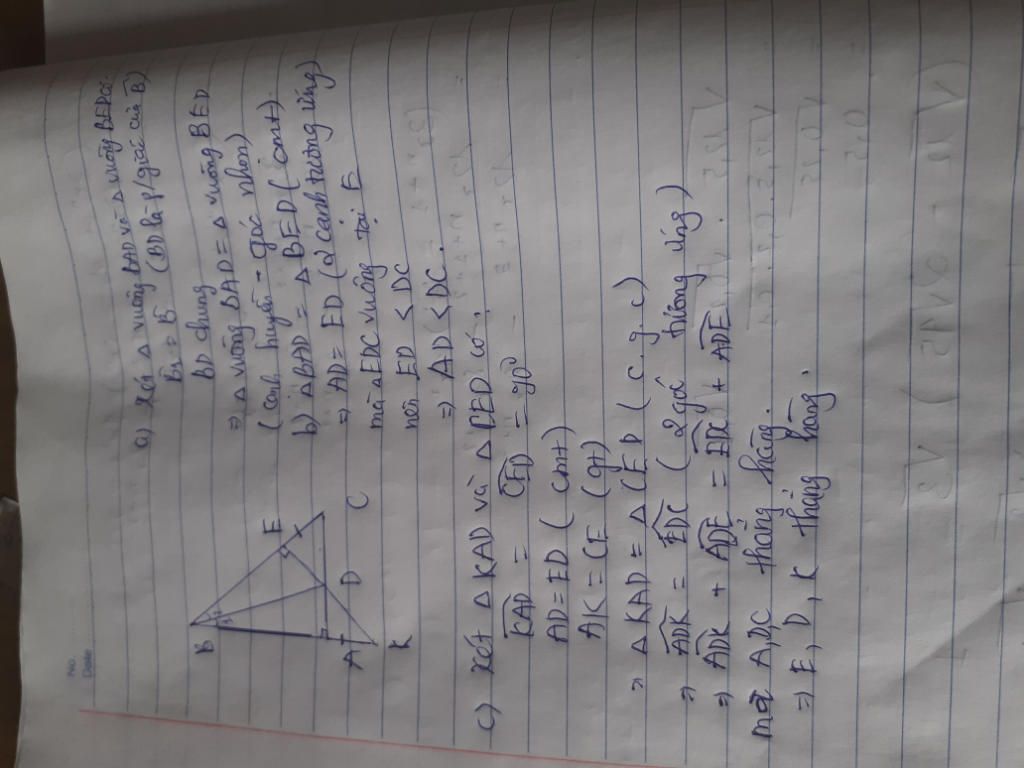 No.
Date
a) Xét Δ vuông BAD và Δ vuông BED có:
B̂₁ = B̂₂ (BD là p/giác của B̂)
BD chung
⇒ Δ vuông BAD = Δ vuông BED
(cạnh huyền - góc nhọn)
b) ΔBAD = ΔBED (cmt)
⇒ AD = ED (2 cạnh tương ứng)
mà ΔEDC vuông tại E
nên ED < DC
⇒ AD < DC.
B
E
A
D
C
K
c) Xét Δ KAD và Δ CED có:
KAD = CED = 90⁰
AD = ED (cmt)
AK = CE (gt)
⇒ Δ KAD = Δ CED (c.g.c)
⇒ ADK = EDC (2 góc tương ứng)
⇒ ADK + ADE = EDC + ADE
mà A, D, C thẳng hàng.
⇒ E, D, K thẳng hàng.